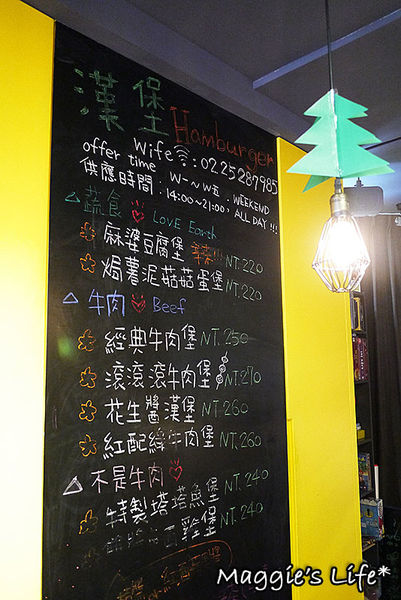 漢堡
Hamburger
Wife 密: 0225287985
offer time W一~W五 . WEEKEND
供應時間 : 14:00~21:00 . ALL DAY !!!
△ 蔬食 LOVE Earth
麻婆豆腐堡 辛辣!!! NT.220
焗薯泥菇菇蛋堡 NT.220
△ 牛肉 Beef
經典牛肉堡 NT.250
滾滾滾牛肉堡 NT.270
花生醬漢堡 NT.260
紅配綠牛肉堡 NT.260
△ 不是牛肉
特製塔塔魚堡 NT.240
雞堡 NT.240
Maggie's Life*